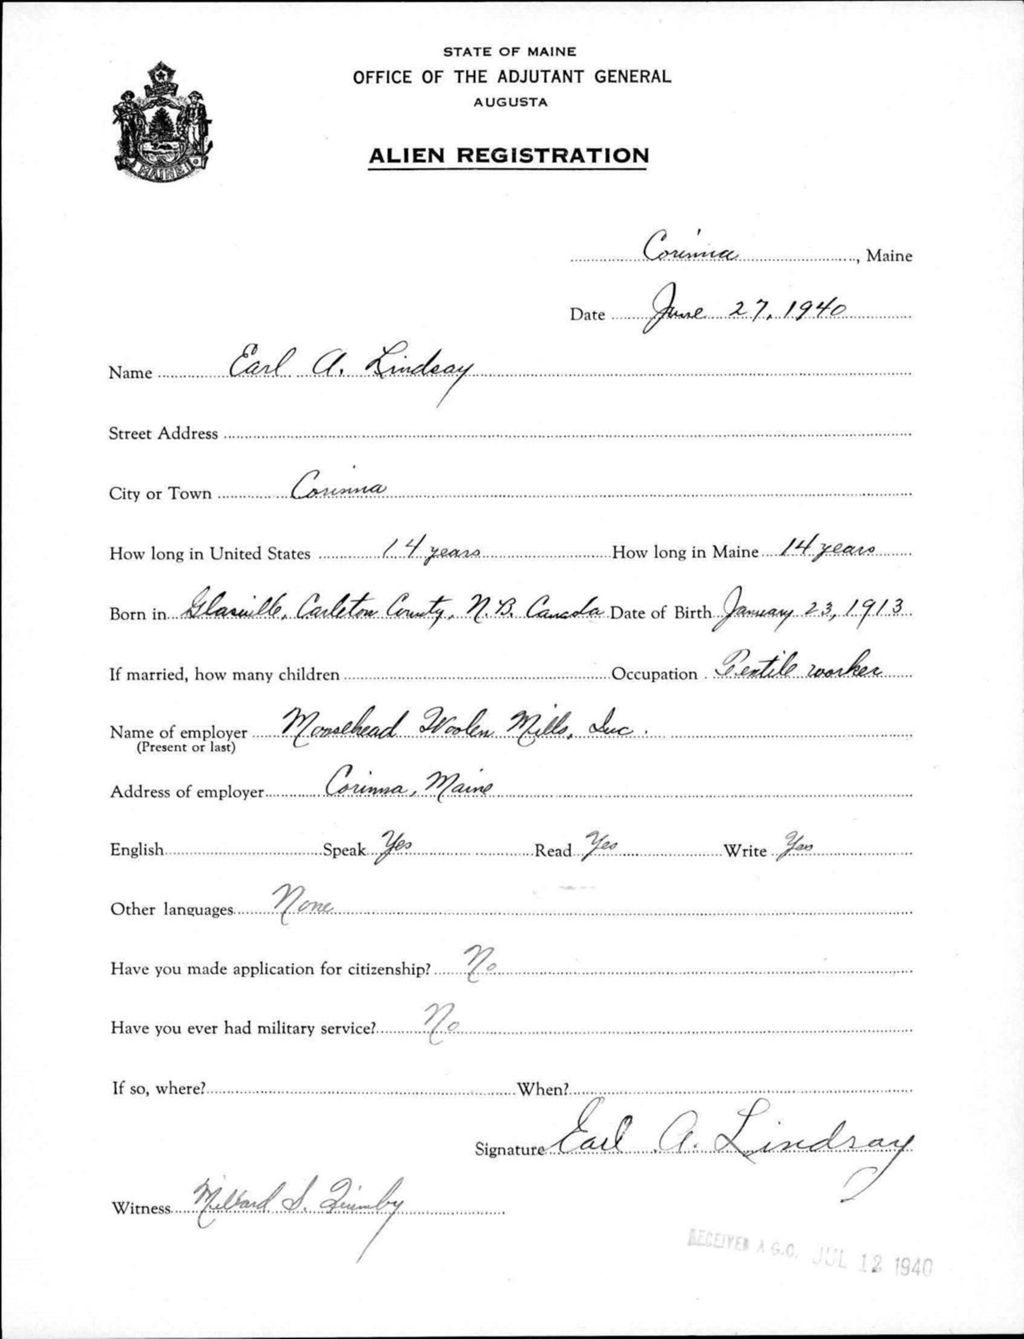 STATE OF MAINE
OFFICE OF THE ADJUTANT GENERAL
AUGUSTA
ALIEN REGISTRATION
MAINE
Corinna, Maine
Date June 27, 1940
Name Earl A. Lindsay
Street Address
City or Town Corinna
How long in United States 14 years How long in Maine 14 years
Born in Glasville, Carleton County, N.B. Canada Date of Birth January 23, 1913
If married, how many children Occupation Textile worker
Name of employer Moosehead Woolen Mills, Inc.
(Present or last)
Address of employer Corinna, Maine
English Speak Yes Read Yes Write Yes
Other languages None
Have you made application for citizenship? No
Have you ever had military service? No
If so, where? When?
Signature Earl A. Lindsay
Witness Millard S. Quimby
RECEIVED A.G.O. JUL 12 1940